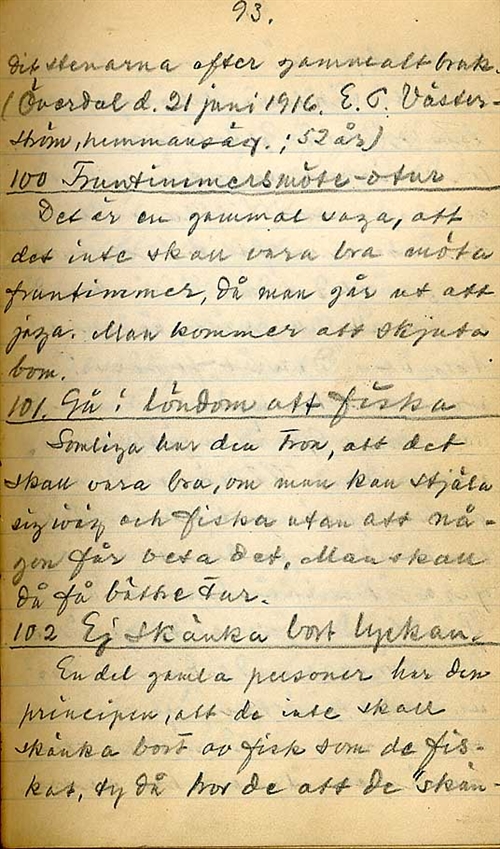 93.
dit stenarna efter gammealt bruk.
(Överdal d. 21 juni 1916. E. P. Väster-
ström, hemmansäg. ; 52 år)
100 Fruntimmersmöte-otur
Det är en gammal saga, att
det inte skall vara bra möta
fruntimmer, då man går ut att
jaga. Man kommer att skjuta
bom.
101. Gå i löndom att fiska
Somliga har den tron, att det
skall vara bra, om man kan stjäla
sig iväg och fiska utan att nå-
gon får veta det. Man skall
då få bättre tur.
102 Ej skänka bort lyckan.
En del gamla personer har den
principen, att de inte skall
skänka bort av fisk som de fis-
kat, ty då tror de att de "skän-